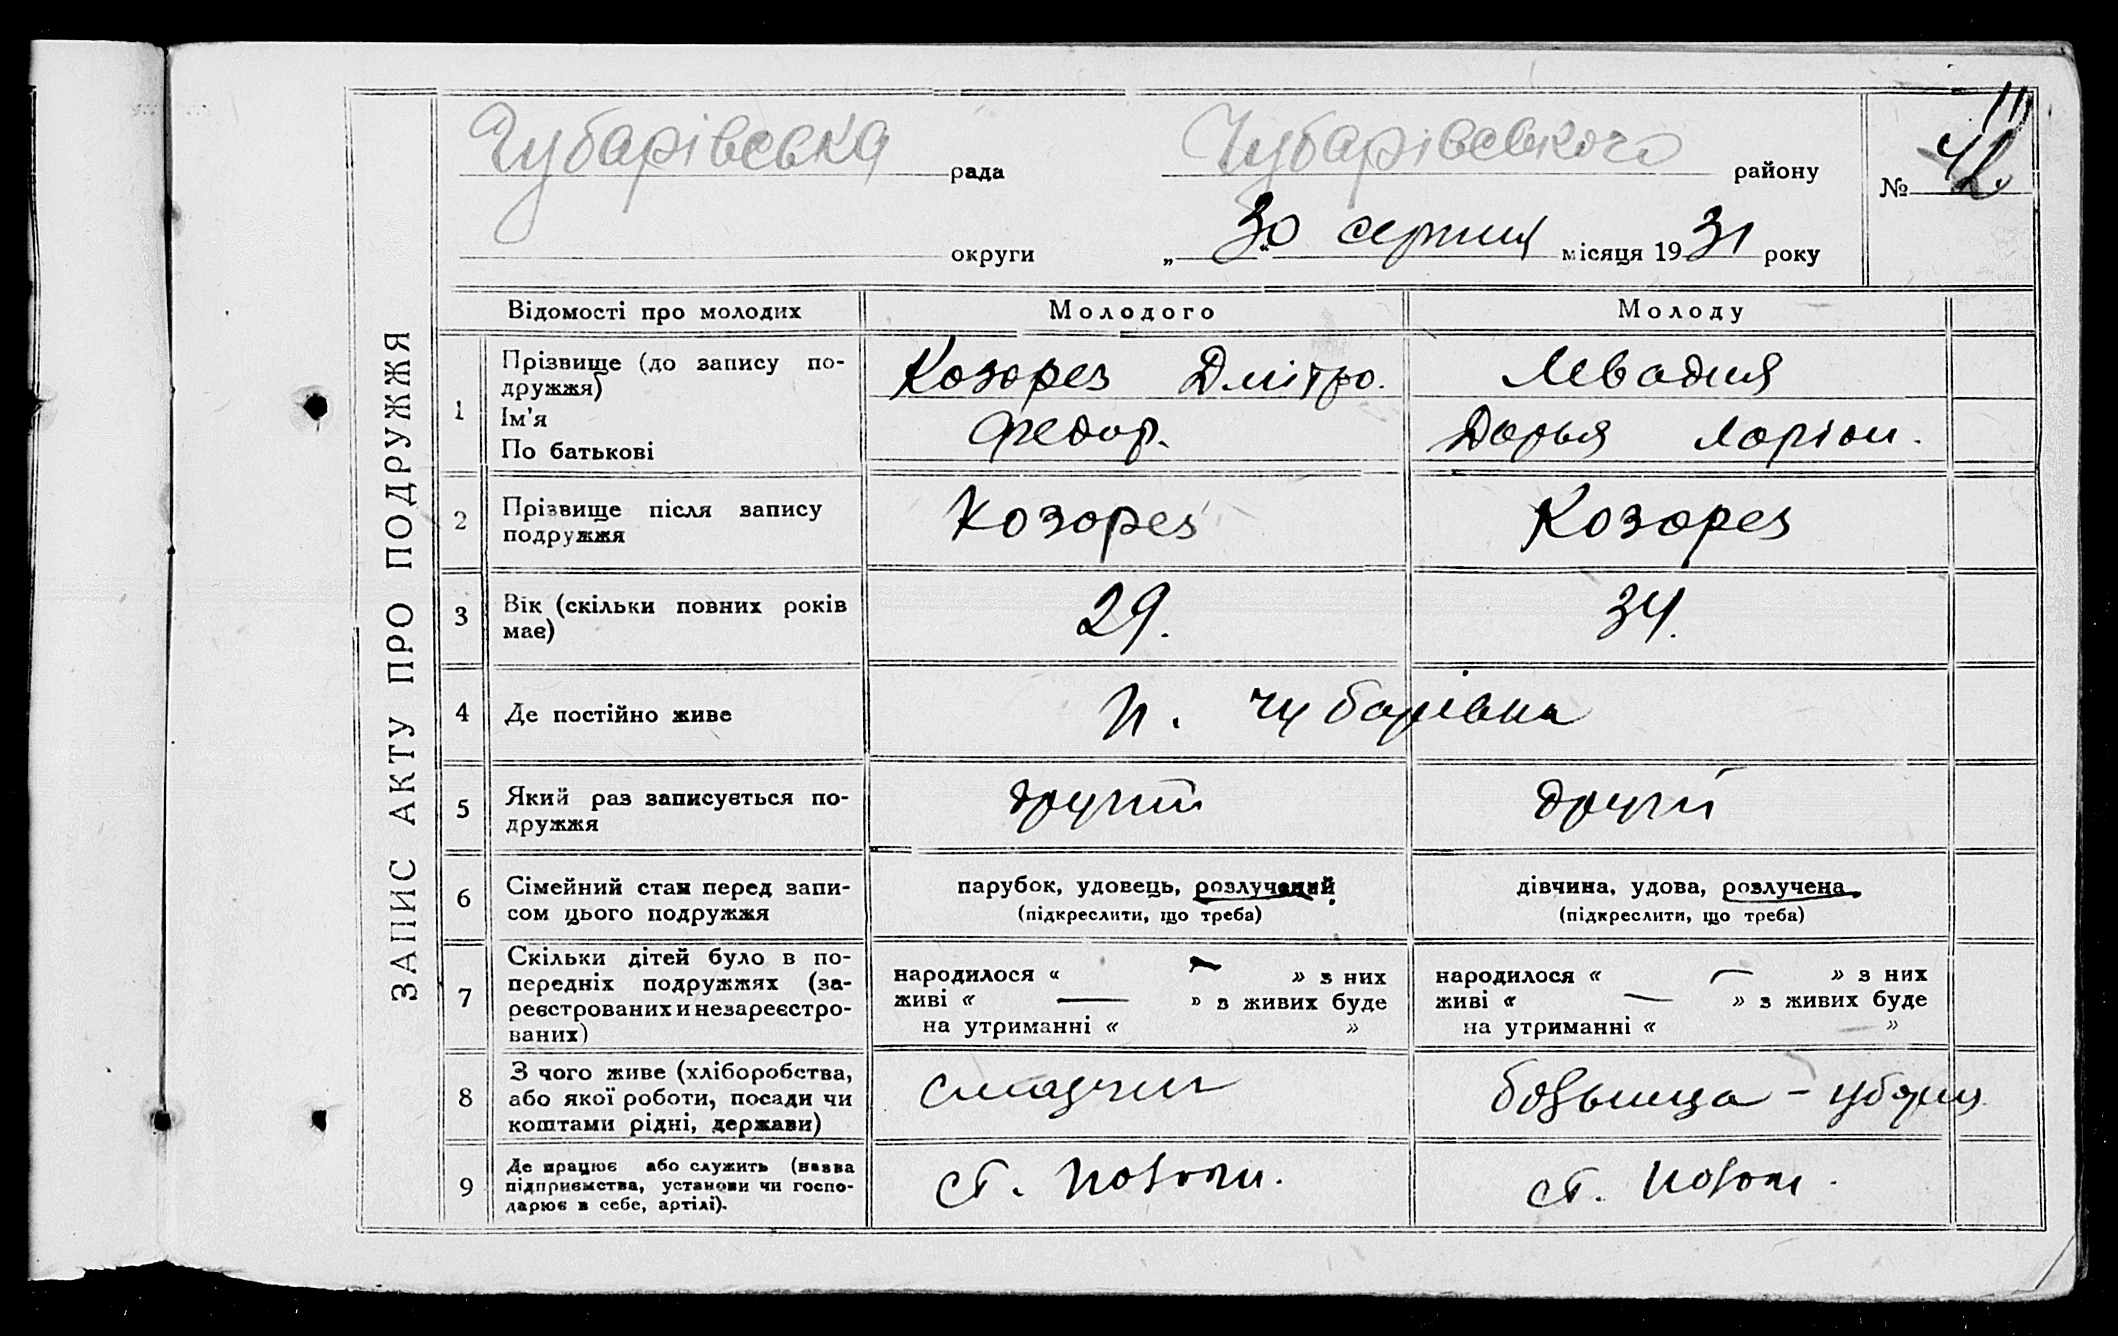 ЗАПИС АКТУ ПРО ПОДРУЖЖЯ
Чубарівська рада Чубарівського району
№ 42
округи „30“ серпня місяця 1931 року
Відомості про молодих Молодого Молоду
1 Прізвище (до запису подружжя) Козорез Дмітро. Левадня
Ім'я
По батькові Федор. Дарья Ларіон.
2 Прізвище після запису подружжя Козорез Козорез
3 Вік (скільки повних років має) 29. 34.
4 Де постійно живе п. Чубарівка
5 Який раз записується подружжя другий другий
6 Сімейний стан перед записом цього подружжя парубок, удовець, розлучений дівчина, удова, розлучена
(підкреслити, що треба) (підкреслити, що треба)
7 Скільки дітей було в попередніх подружжях (зареєстрованих и незареєстрованих) народилося « — » з них народилося « — » з них
живі « — » з живих буде живі « — » з живих буде
на утриманні « » на утриманні « »
8 З чого живе (хліборобства, або якої роботи, посади чи коштами рідні, держави)
9 Де працює або служить (назва підприємства, установи чи господарює в себе, артілі). ст. ст.